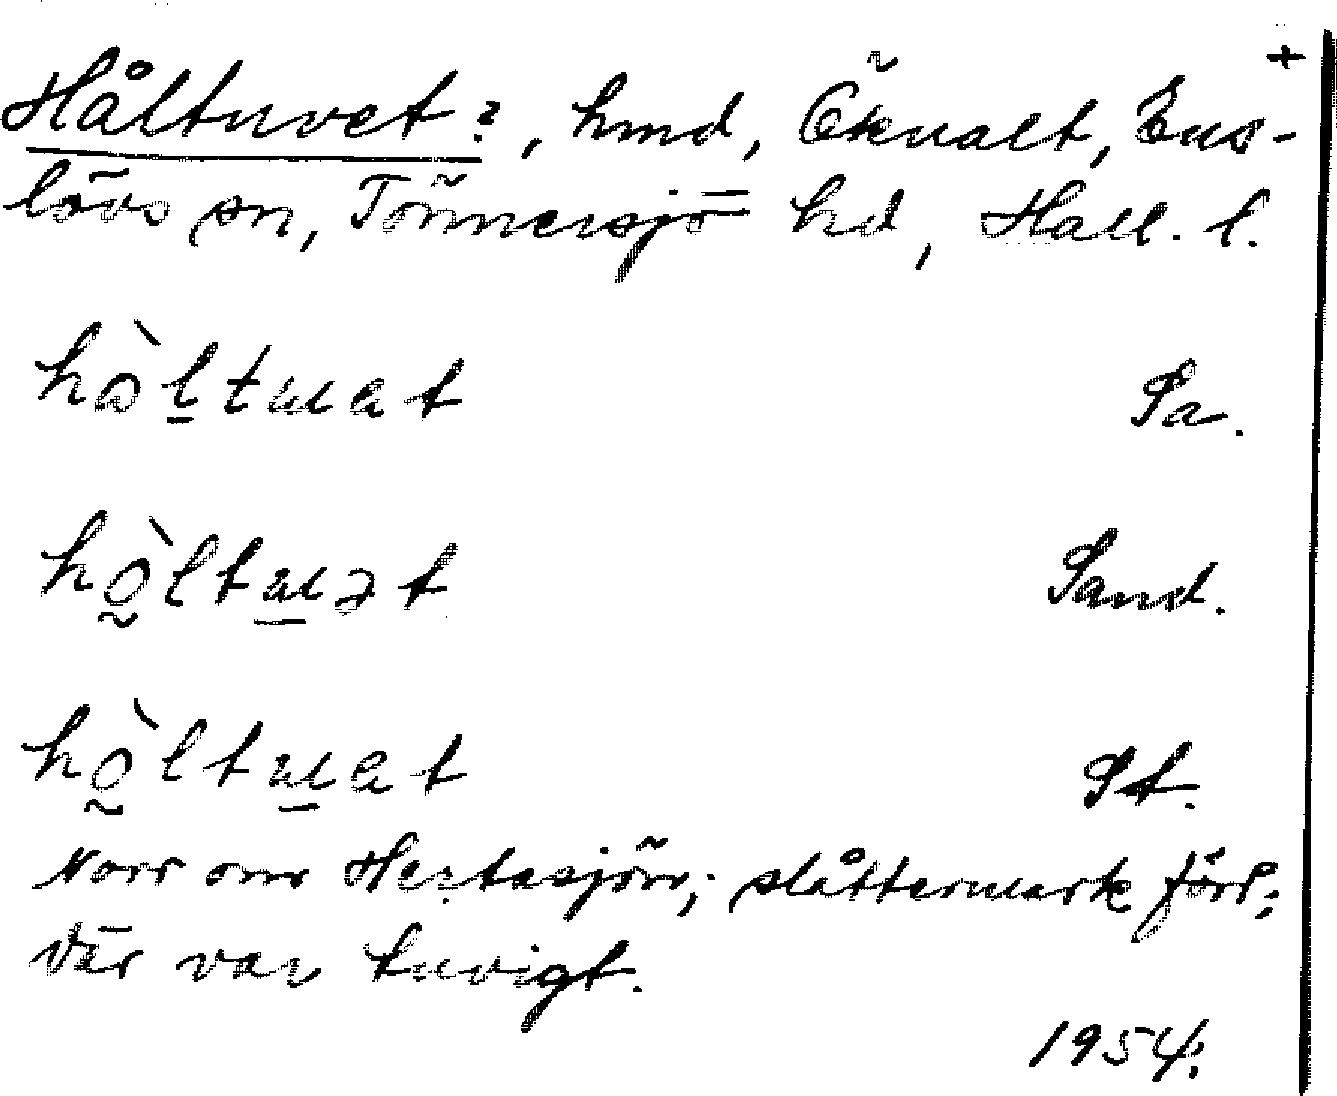 +
Håltuvet?, hmd, Öknalt, Ens-
lövs sn, Tönnersjö hd, Hall. l.
hòltuat Pa.
hòltuət Sand.
hòltuat St.
Norr om Hertasjön; slåttermark förr;
där var tuvigt.
1954.